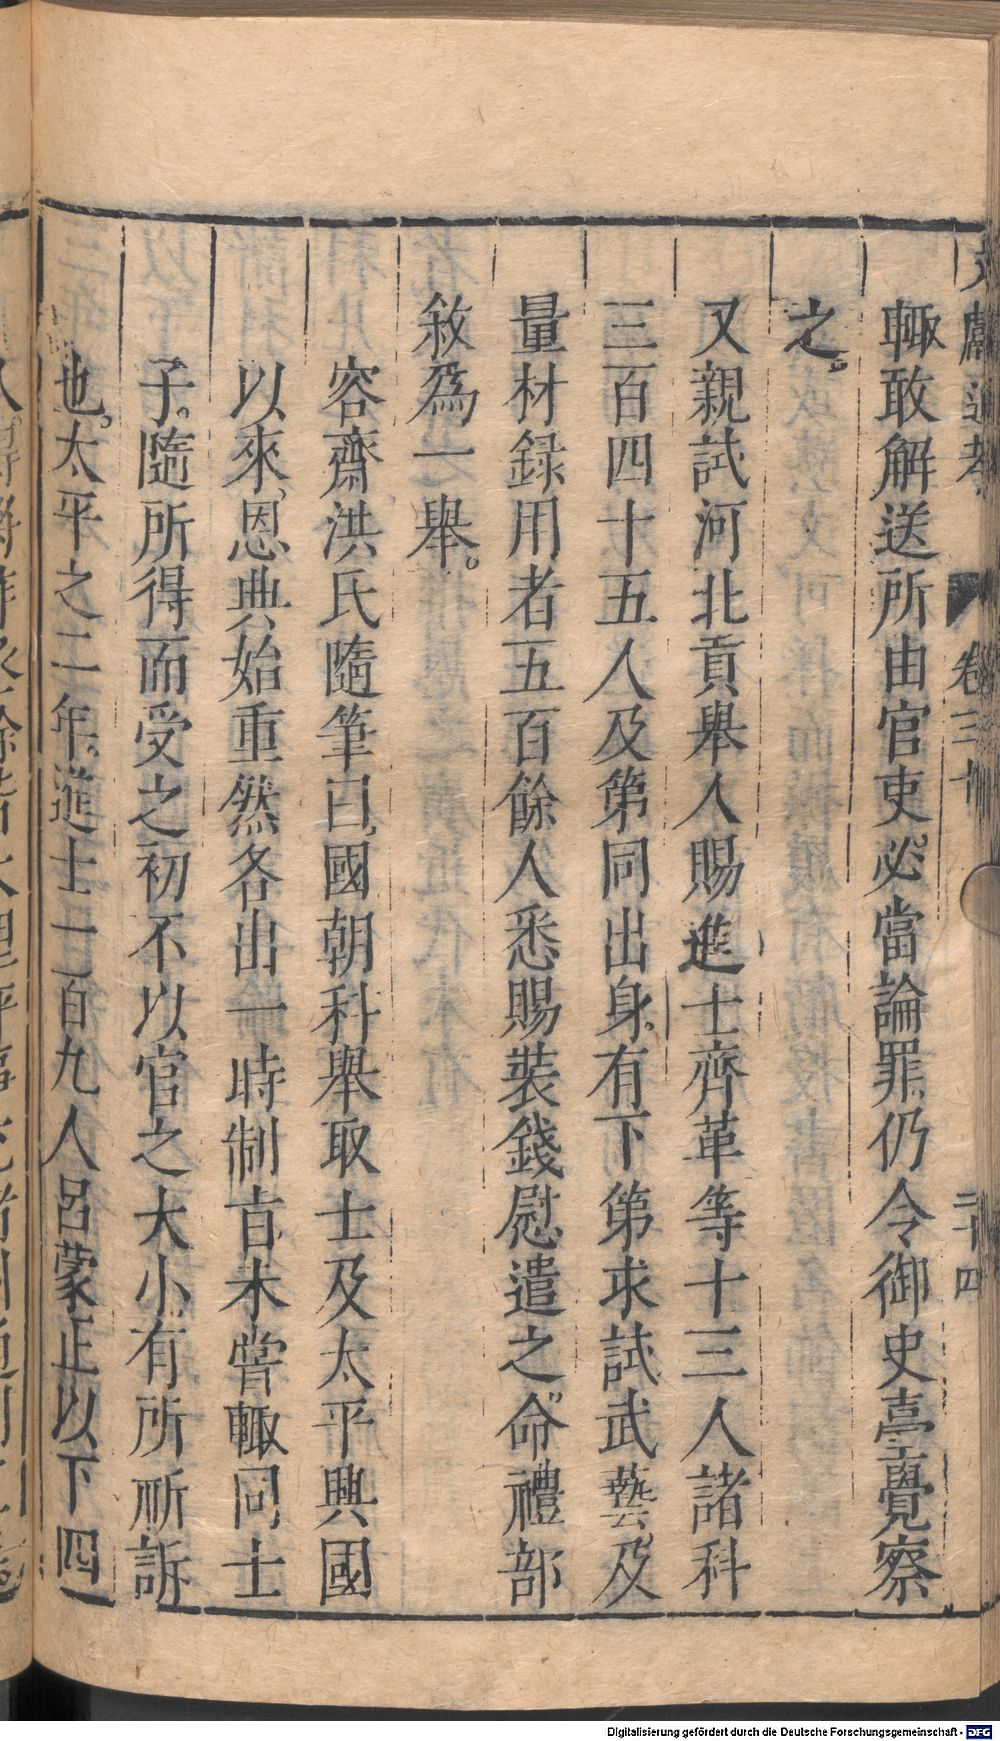 文獻通考 卷三十 二十四
輙敢解送所由官吏必當論罪仍令御史臺覺察
之。
又親試河北貢舉人賜進士齊革等十三人諸科
三百四十五人及第同出身有下第求試武藝及
量材録用者五百餘人悉賜裝錢慰遣之命禮部
敘爲一舉。
容齋洪氏隨筆曰國朝科舉取士及太平興國
以來恩典始重然各出一時制㫖未嘗輙同士
子隨所得而受之初不以官之大小有所祈訴
也。太平之二年進士一百九人呂蒙正以下四
Digitalisierung gefördert durch die Deutsche Forschungsgemeinschaft - DFG